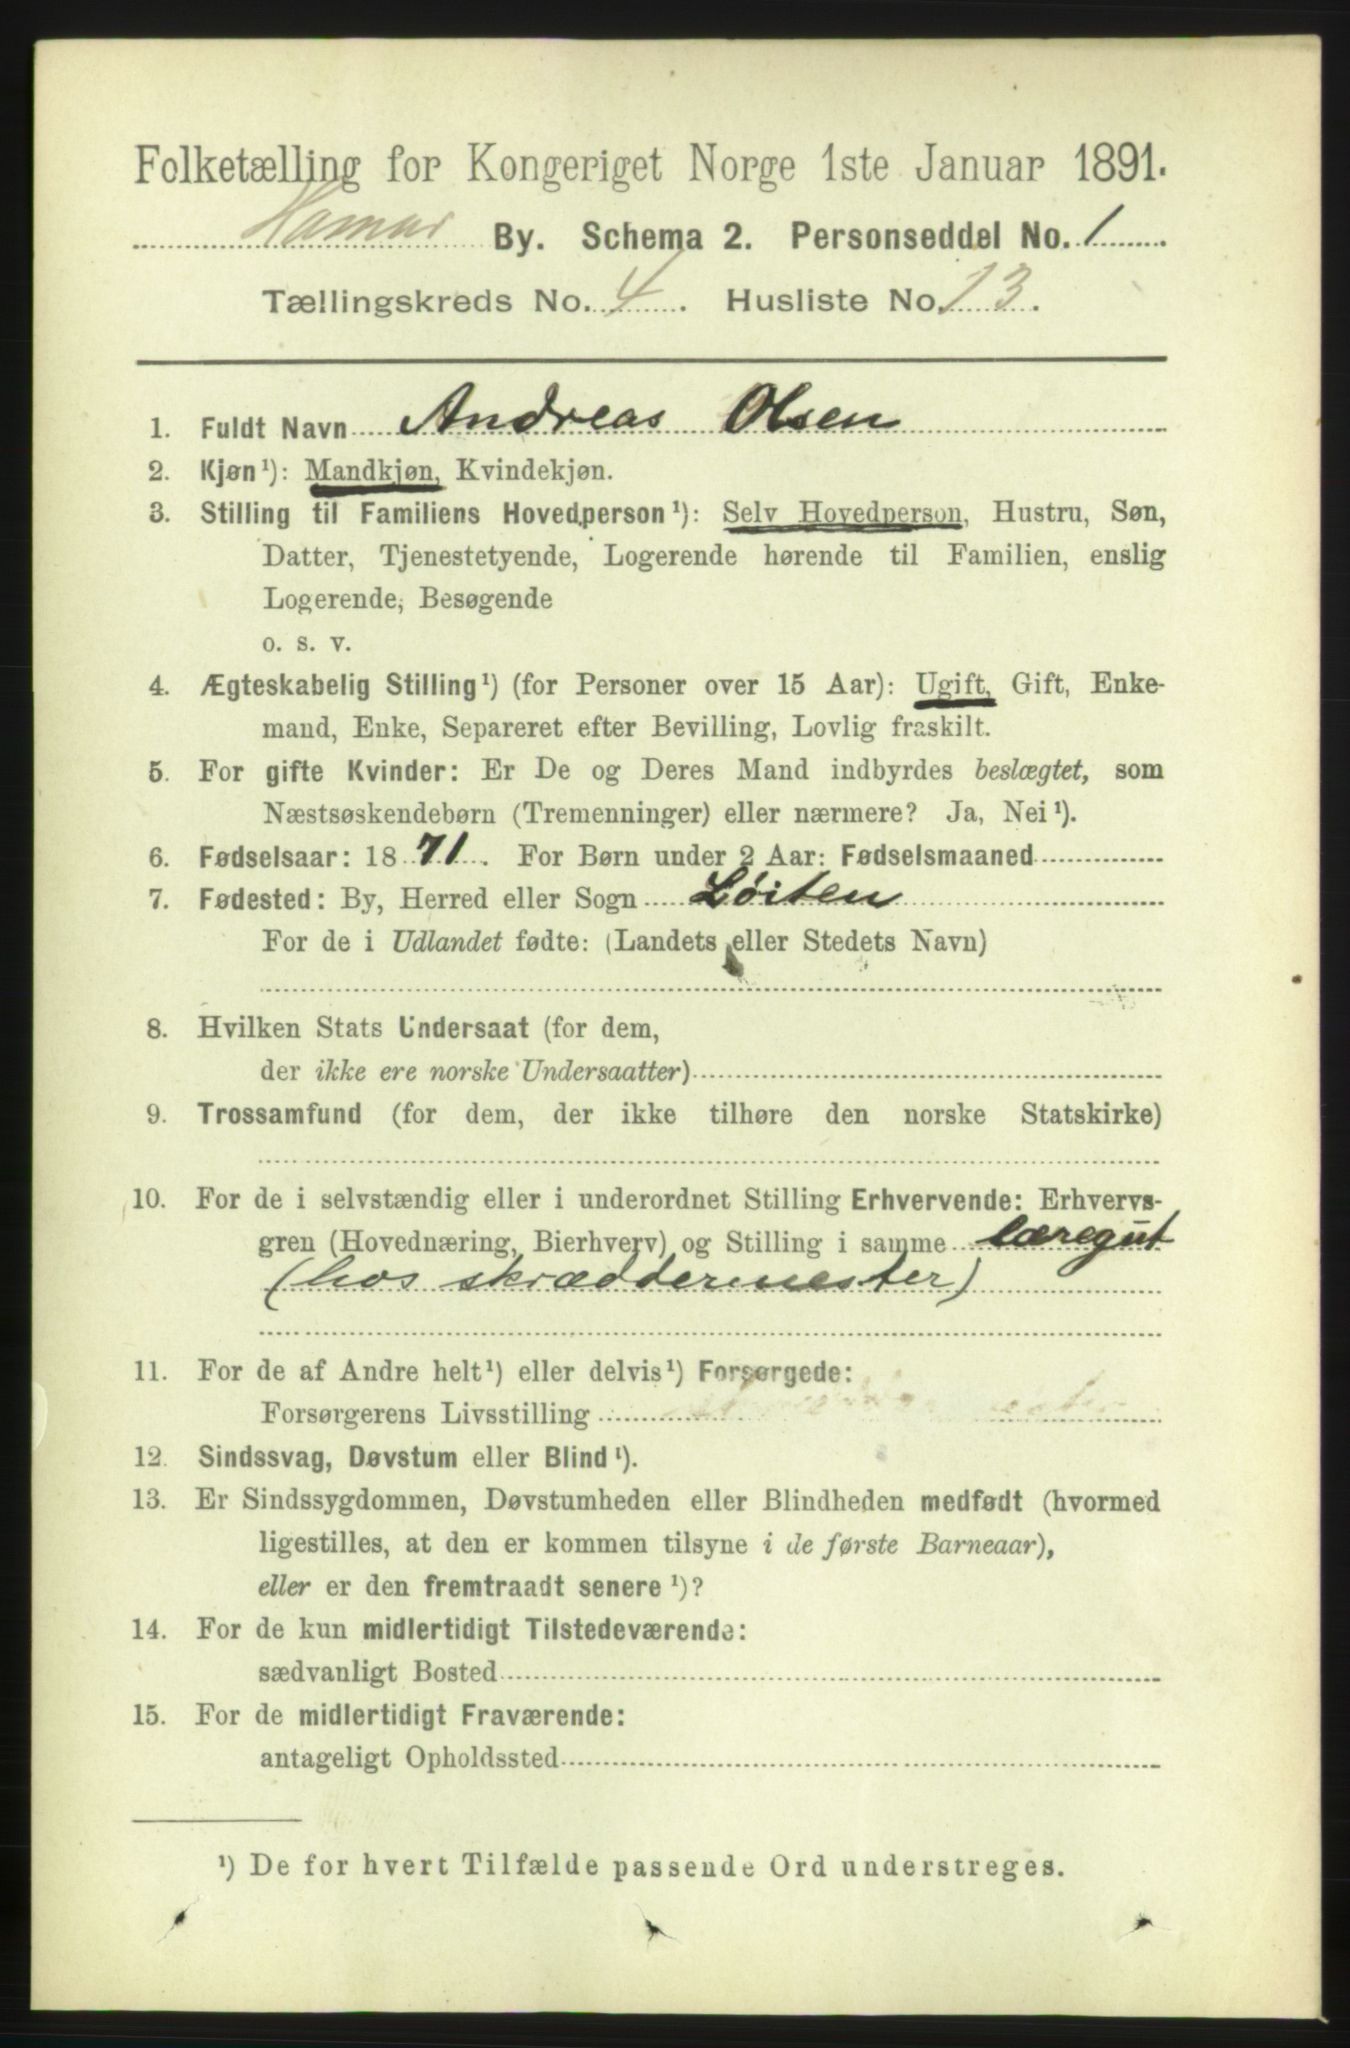 Folketælling for Kongeriget Norge 1ste Januar 1891.
Hamar By. Schema 2. Personseddel No. 1
Tællingskreds No. 4. Husliste No. 13.
1. Fuldt Navn Andreas Olsen
2. Kjøn¹): Mandkjøn, Kvindekjøn.
3. Stilling til Familiens Hovedperson¹): Selv Hovedperson, Hustru, Søn,
Datter, Tjenestetyende, Logerende hørende til Familien, enslig
Logerende, Besøgende
o. s. v.
4. Ægteskabelig Stilling¹) (for Personer over 15 Aar): Ugift, Gift, Enke-
mand, Enke, Separeret efter Bevilling, Lovlig fraskilt.
5. For gifte Kvinder: Er De og Deres Mand indbyrdes beslægtet, som
Næstsøskendebørn (Tremenninger) eller nærmere? Ja, Nei¹).
6. Fødselsaar: 1871. For Børn under 2 Aar: Fødselsmaaned
7. Fødested: By, Herred eller Sogn Løiten
For de i Udlandet fødte: (Landets eller Stedets Navn)
8. Hvilken Stats Undersaat (for dem,
der ikke ere norske Undersaatter)
9. Trossamfund (for dem, der ikke tilhøre den norske Statskirke)
10. For de i selvstændig eller i underordnet Stilling Erhvervende: Erhvervs-
gren (Hovednæring, Bierhverv) og Stilling i samme læregut
(hos skræddermester)
11. For de af Andre helt¹) eller delvis¹) Forsørgede:
Forsørgerens Livsstilling
12. Sindssvag, Døvstum eller Blind¹).
13. Er Sindssygdommen, Døvstumheden eller Blindheden medfødt (hvormed
ligestilles, at den er kommen tilsyne i de første Barneaar),
eller er den fremtraadt senere¹)?
14. For de kun midlertidigt Tilstedeværende:
sædvanligt Bosted
15. For de midlertidigt Fraværende:
antageligt Opholdssted
¹) De for hvert Tilfælde passende Ord understreges.